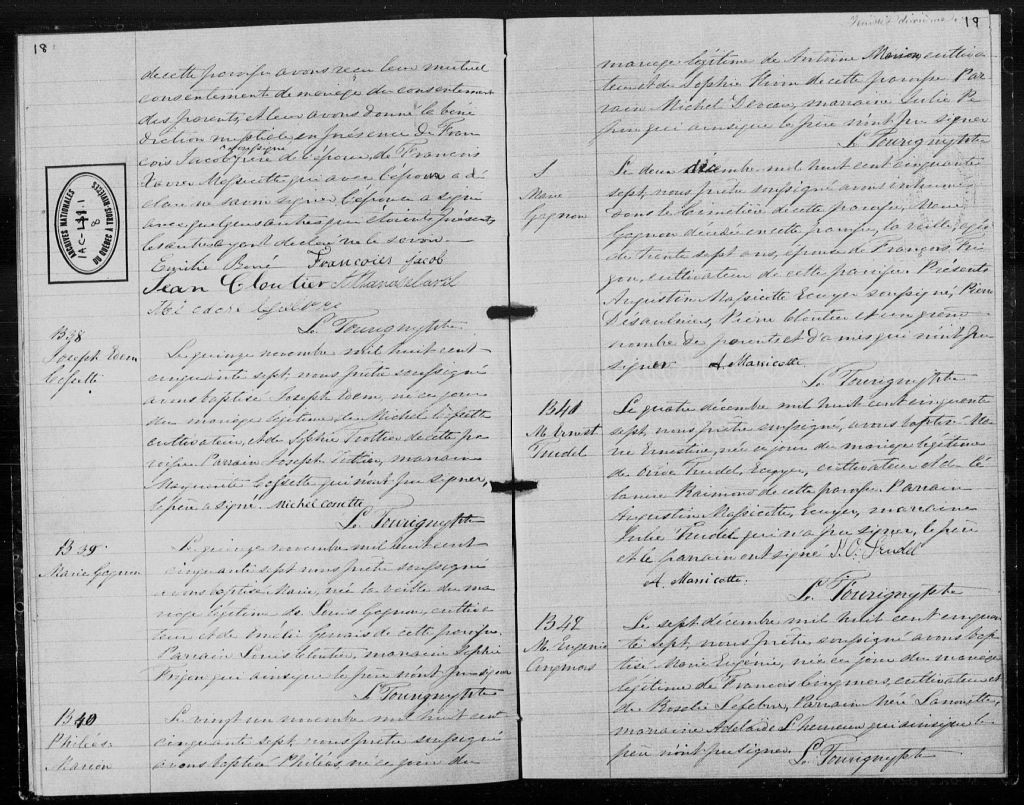 18
de cette paroisse avons reçu leur mutuel
consentement de mariage du consentement
des parents, et leur avons donné la béné
diction nuptiale en présence de Fran
çois Jacob soussigné père de l'épouse, de François
Xavier Massicotte qui avec l'époux a dé
claré ne savoir signer. L'épouse a signé
avec quelques autres présents
les autres ayant déclaré ne le savoir.
Emilie François Jacob
Jean Cloutier
Ls. Tourigny ptre
ARCHIVES NATIONALES
DU QUÉBEC À TROIS-RIVIÈRES
B 38
Joseph Edem
Cossette
Le quinze novembre mil huit cent
cinquante sept, nous prêtre soussigné
avons baptisé Joseph Edem, né ce jour
du mariage légitime de Michel Cossette
cultivateur, et de Sophie Trottier de cette pa
roisse Parrain Joseph Trottier, marraine
Marguerite Cossette qui n'ont pu signer,
le père a signé. Michel Cossette
Ls. Tourigny ptre
B 39
Marie Gagnon
Le quinze novembre mil huit cent
cinquante sept nous prêtre soussigné
avons baptisé Marie, née la veille du ma
riage légitime de Louis Gagnon, cultiva
teur et de Emélie Gervais de cette paroisse.
Parrain Louis Cloutier, marraine Sophie
Frigon qui ainsi que le père n'ont pu signer
Ls. Tourigny ptre
B 40
Philéas
Marion
Le vingt un novembre mil huit cent
cinquante sept, nous prêtre soussigné
avons baptisé Philéas, né ce jour du
19
mariage légitime de Antoine Marion cultiva
teur et de Sophie de cette paroisse Par
rain Michel marraine Julie
qui ainsi que le père n'ont pu signer
Ls. Tourigny ptre
S
Marie
Gagnon
Le deux décembre mil huit cent cinquante
sept, nous prêtre soussigné avons inhumé
dans le cimetière de cette paroisse, Marie
Gagnon décédée en cette paroisse, la veille, agée
de trente sept ans, épouse de François Fri
gon, cultivateur de cette paroisse. Présents
Augustin Massicotte Ecuyer soussigné, Pierre
Désaulniers, Pierre Cloutier et un grand
nombre de parents et d'amis qui n'ont pu
signer A Massicotte.
Ls. Tourigny ptre
B 41
M. Ernest
Trudel
Le quatre décembre mil huit cent cinquante
sept, nous prêtre soussigné, avons baptisé Ma
rie Ernestine, née ce jour du mariage légitime
de Trudel, Ecuyer, cultivateur et de
Raimond de cette paroisse. Parrain
Augustin Massicotte Ecuyer, marraine
Julie Trudel qui n'a pu signer, le père
et le parrain ont signé O. C. Trudel
A Massicotte.
Ls. Tourigny ptre
B 42
M. Eugénie
Cinqmars
Le sept décembre mil huit cent cinquan
te sept, nous prêtre soussigné avons bap
tisé Marie Eugénie, née ce jour du mariage
légitime de François Cinqmars, cultivateur et
de Rosalie Lefebvre, Parrain Lanouette,
marraine Adelaïde L'heureux qui ainsi que le
père n'ont pu signer. Ls. Tourigny ptre